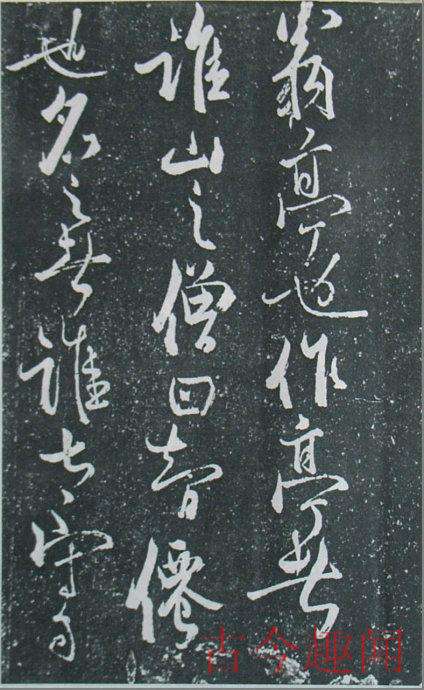 翁亭也作亭者
誰山之僧曰智僊
也名之者誰太守自
古今趣闻